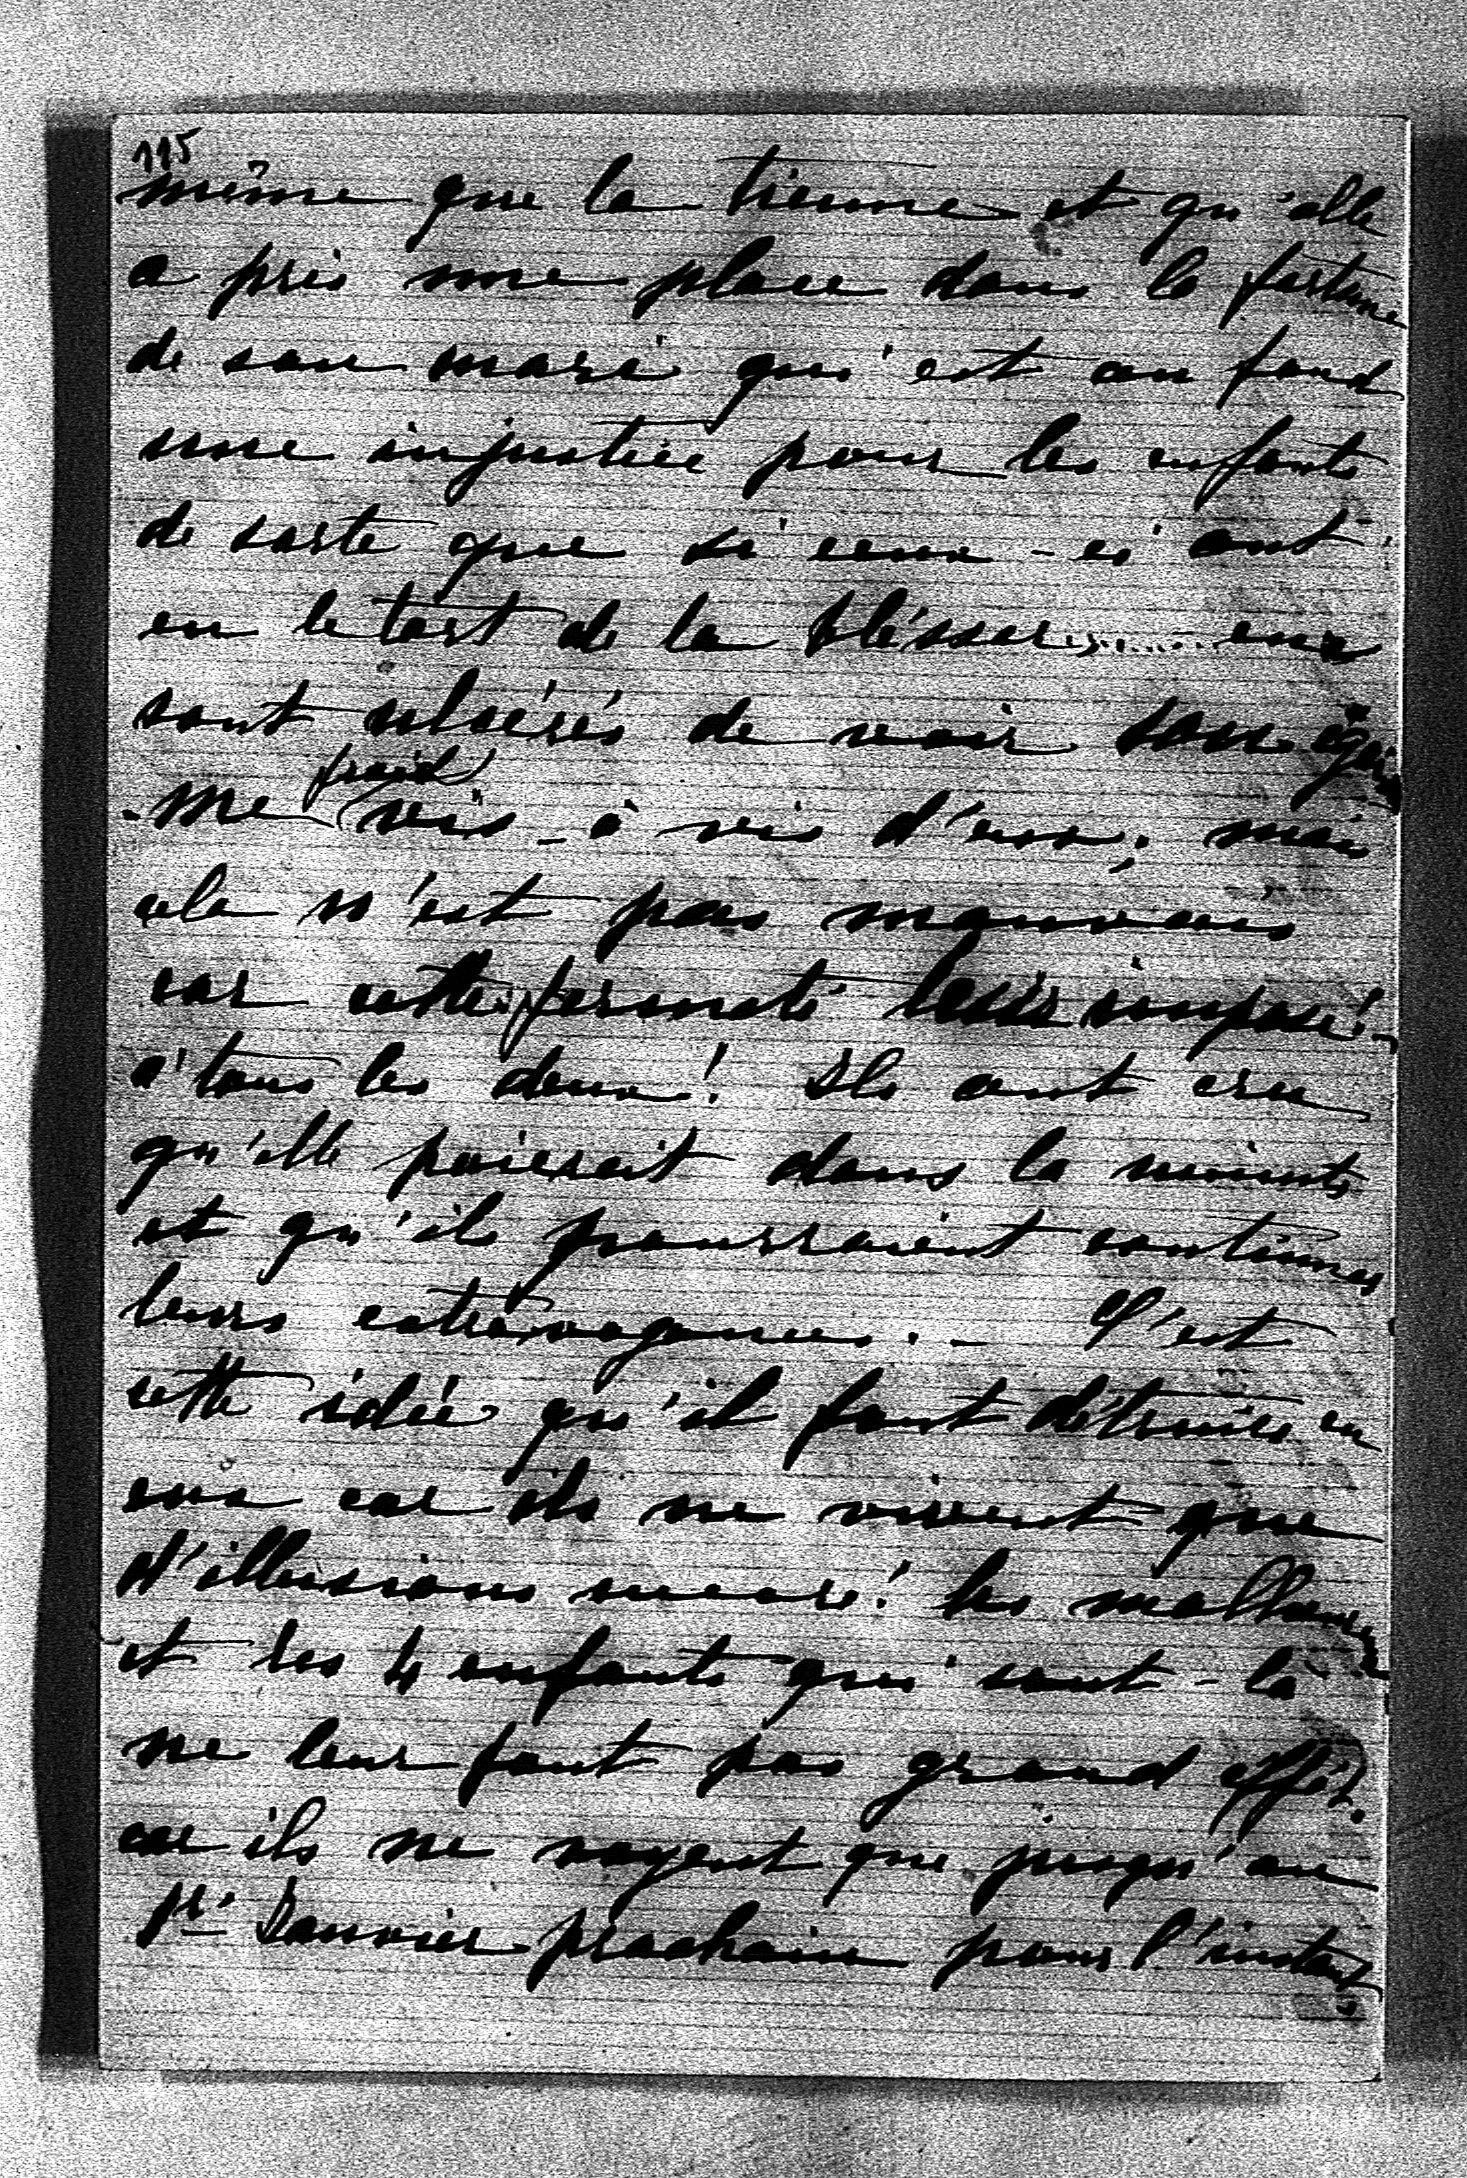 115
même que la tienne et qu'elle
a pris une place dans la fortune
de son mari qui est au fond
une injustice pour les enfants
de sorte que si ceux-ci ont
eu le tort de la blesser ........ eux
sont ulsérés de voir son
froid
me vis-à vis d'eux; mais
cela n'est pas mauvais
car cette fermeté leur impose
à tous les deux! Ils ont cru
qu'elle paierait dans la minute
et qu'ils pourraient continuer
leurs extravagances. - C'est
cette idée qu'il faut détruire en
eux car ils ne vivent que
d'illusions encore! les malheureux
et les 4 enfants qui sont-là
ne leur font pas grand effet.
car ils ne voyent que jusqu'au
1er Janvier prochain pour l'instant